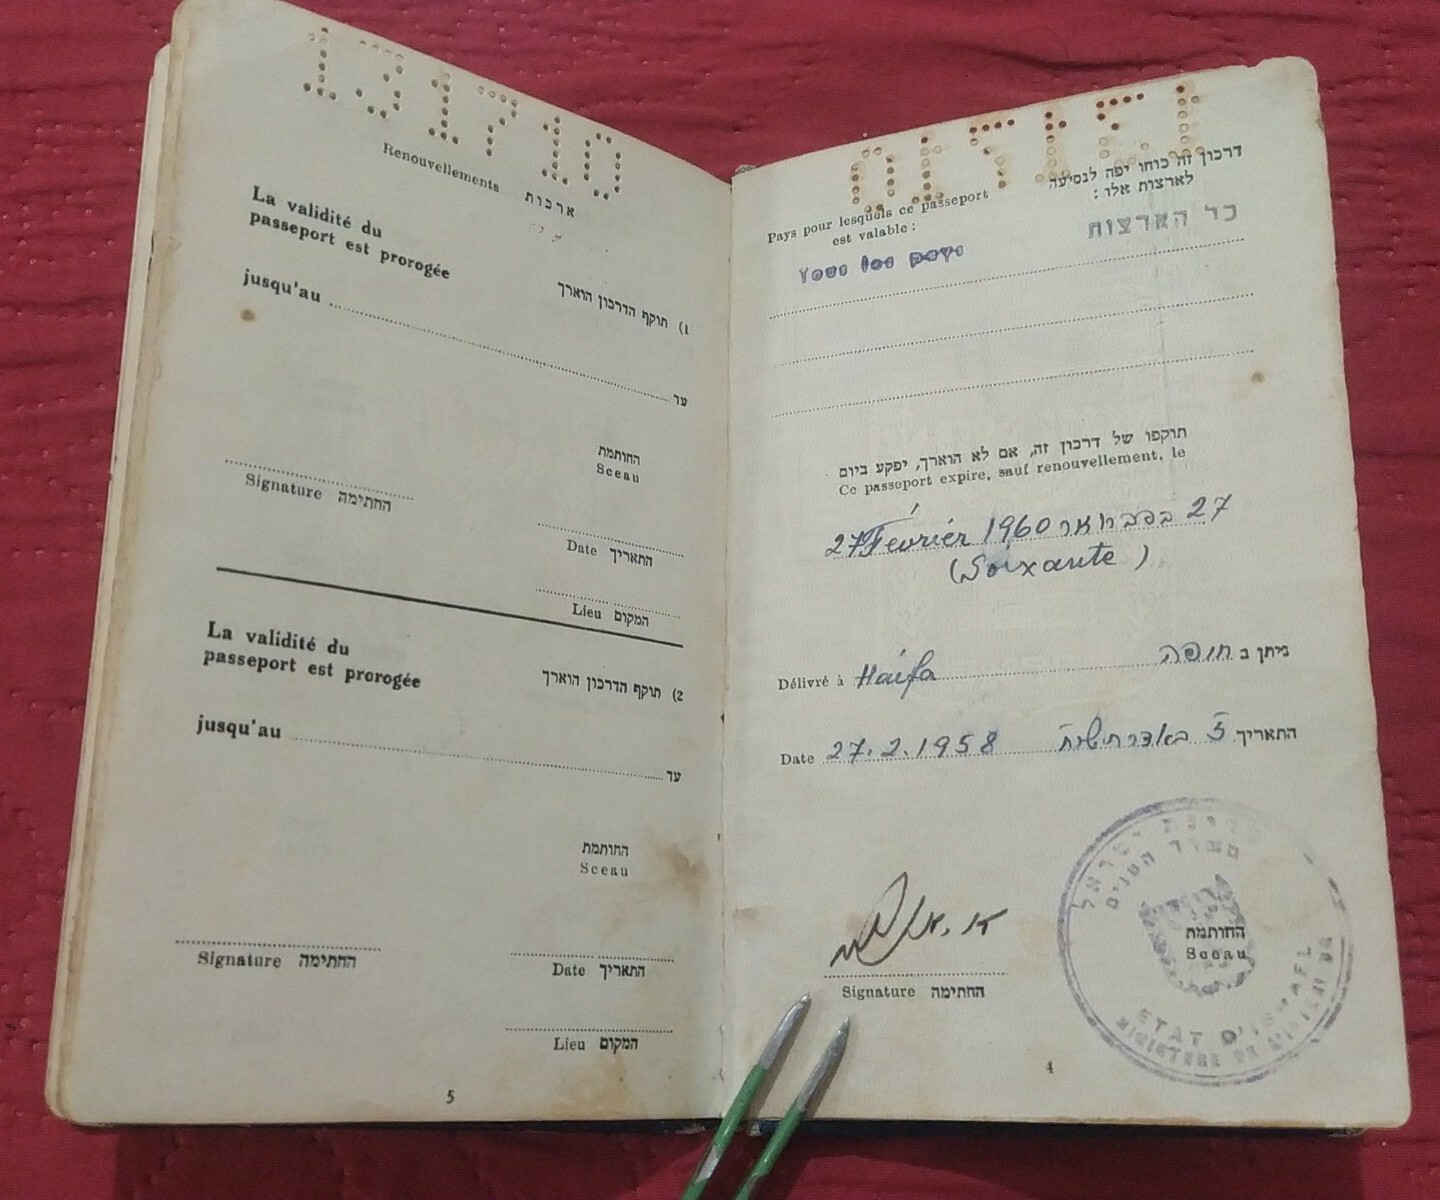 131710
Renouvellements ארכות
La validité du
passeport est prorogée
1) תוקף הדרכון הוארך
jusqu'au
עד
החותמת
Sceau
Signature החתימה
Date התאריך
Lieu המקום
La validité du
passeport est prorogée
2) תוקף הדרכון הוארך
jusqu'au
עד
החותמת
Sceau
Signature החתימה
Date התאריך
Lieu המקום
5
דרכון זה כוחו יפה לנסיעה
לארצות אלו :
Pays pour lesquels ce passeport
est valable :
כל הארצות
Tous les pays
תוקפו של דרכון זה, אם לא הוארך, יפקע ביום
Ce passeport expire, sauf renouvellement, le
27 Février 1960 27 בפברואר
(Soixante)
Délivré à Haifa ניתן ב חיפה
Date 27.2.1958 התאריך ז באדר תשי"ח
Signature החתימה
מדינת ישראל
משרד הפנים
החותמת
Sceau
ETAT D'ISRAEL
MINISTERE DE L'INTERIEUR
4